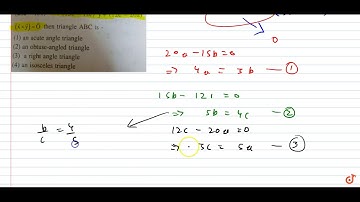 (x + y) = 0 then triangle ABC is -
(1) an acute angle triangle
(2) an obtuse-angled triangle
(3) a right angle triangle
(4) an isosceles triangle
0
20a - 15b = 0
⇒ 4a = 3b - ①
15b - 12c = 0
⇒ 5b = 4c - ②
12c - 20a = 0
⇒ 3c = 5a - ③
b/c = 4/5